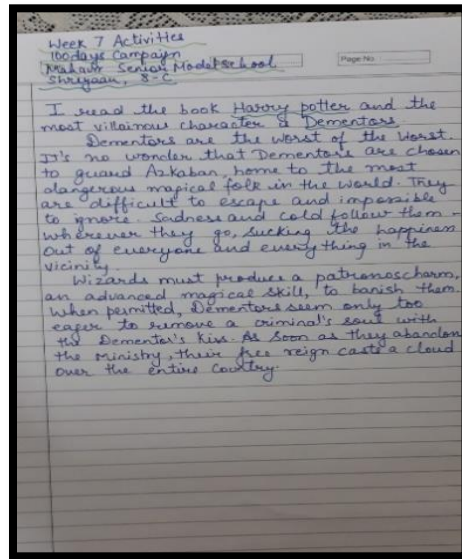 Week 7 Activities
100days Campaign
Mahavir Senior Model School
Shreyaan, 8-C
Page No
I read the book Harry potter and the
most villainous character is Dementors.
Dementors are the worst of the worst.
It's no wonder that Dementors are chosen
to guard Azkaban, home to the most
dangerous magical folk in the world. They
are difficult to escape and impossible
to ignore. Sadness and cold follow them -
wherever they go, sucking the happiness
out of everyone and everything in the
vicinity.
Wizards must produce a patronoscharm,
an advanced magical skill, to banish them.
When permitted, Dementors seem only too
eager to remove a criminal's soul with
the Dementor's Kiss. As soon as they abandon
the ministry, their free reign casts a cloud
over the entire country.